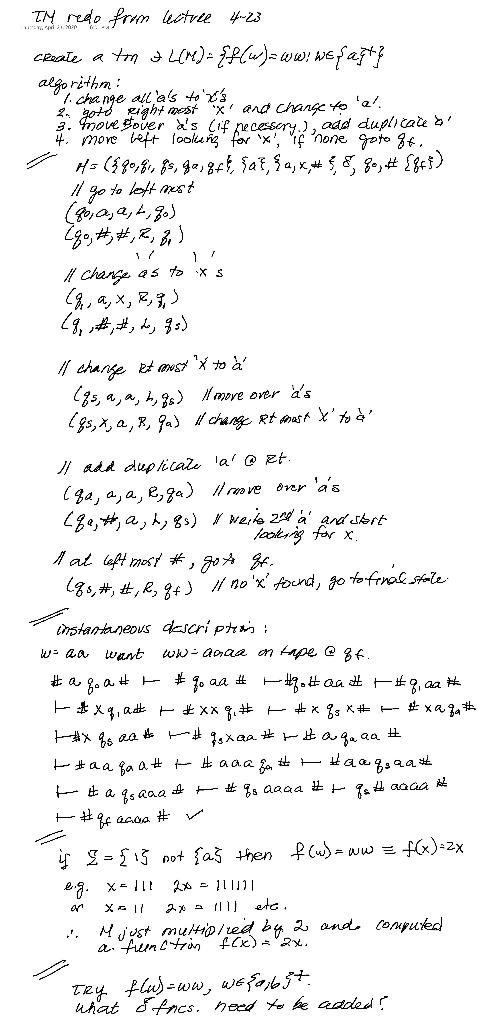 TM redo from lecture 4-23
Thursday, April 23, 2020
create a tm ∋ L(M) = {f(w) = ww: w∈{a}⁺}
algorithm:
1. change all 'a's to 'x's
2. goto right most 'x' and change to 'a'.
3. move over 'a's (if necessary), add duplicate 'a'
4. move left looking for 'x', if none goto qf.
M = ({q0, q1, qs, qa, qf}, {a}, {a, x, #}, δ, q0, # {qf})
// go to left most
(q0, a, a, L, q0)
(q0, #, #, R, q1)
// change 'a's to 'x's
(q1, a, x, R, q1)
(q1, #, #, L, qs)
// change Rt most 'x' to 'a'
(qs, a, a, L, qs) // move over 'a's
(qs, x, a, R, qa) // change Rt most 'x' to 'a'
// add duplicate 'a' @ Rt.
(qa, a, a, R, qa) // move over 'a's
(qa, #, a, L, qs) // write 2nd 'a' and start
looking for x.
// at left most #, go to qf.
(qs, #, #, R, qf) // no 'x' found, go to final state
instantaneous description:
w = aa want ww = aaaa on tape @ qf.
# a q0 a # ⊢ # q0 aa # ⊢ # q0 # aa # ⊢ # q1 aa #
⊢ # x q1 a # ⊢ # xx q1 # ⊢ # x qs x # ⊢ # x a qa #
⊢ # x qs aa # ⊢ # qs x aa # ⊢ # a qa aa #
⊢ # aa qa a # ⊢ # aaa qa # ⊢ # aa qs aa #
⊢ # a qs aaa # ⊢ # qs aaaa # ⊢ qs # aaaa #
⊢ # qf aaaa # ✓
if Σ = {1} not {a} then f(w) = ww ≡ f(x) = 2x
e.g. x = 111 2x = 111111
or x = 11 2x = 1111 etc.
∴ M just multiplied by 2 and computed
a function f(x) = 2x.
TRY f(w) = ww, w∈{a,b}⁺.
what δ fncs. need to be added?